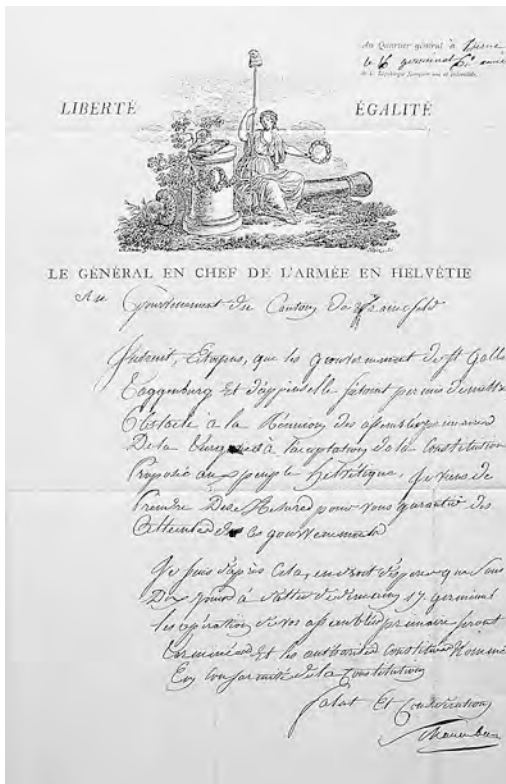 Au Quartier général à Berne
le germinal 6e année
de la République française une et indivisible.
LIBERTÉ ÉGALITÉ
LE GÉNÉRAL EN CHEF DE L'ARMÉE EN HELVÉTIE
Au Gouvernement du Canton de frauenfeld
Instruit, Citoyens, que les gouvernement de St Galle
Toggenburg Et d'appenzelle permis de mettre
Obstacle a la Réunion des assemblées primaires
De la et à l'acceptation de la Constitution
Proposée au peuple helvétique, Je viens de
Prendre Des Mesures pour vous garantir des
Atteintes de ces gouvernements
Je suis d'après Cela, en droit d'espérer que Sous
Dix jours à datter de demain 17 germinal
les opérations de vos assemblées primaire seront
terminées Et les authorités Constituées Nommées
En Conformité de la Constitution
Salut Et Considération